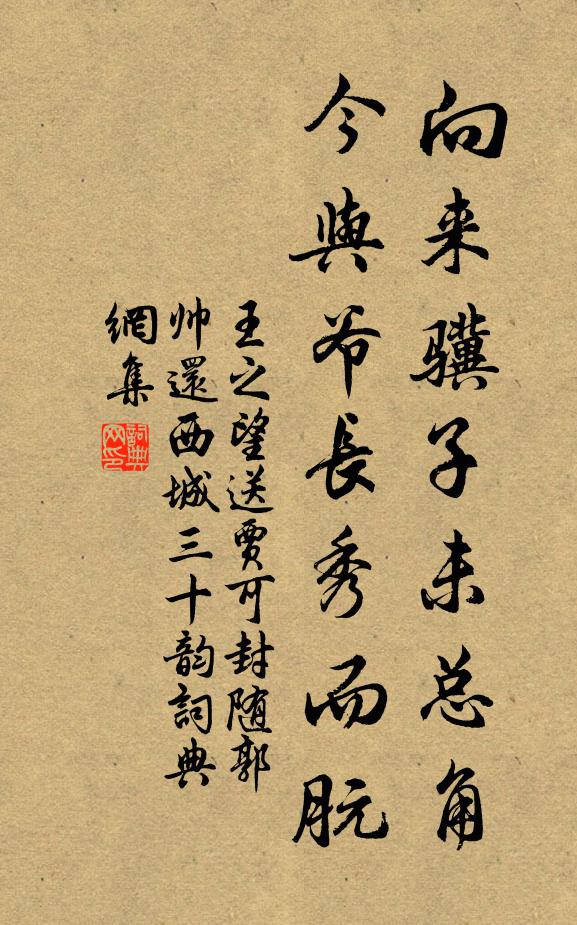 向来骥子未总角
今與爷長秀而朊
王之望送賈可封随郭
帅還西城三十韵詞典
網集
詞典
网印